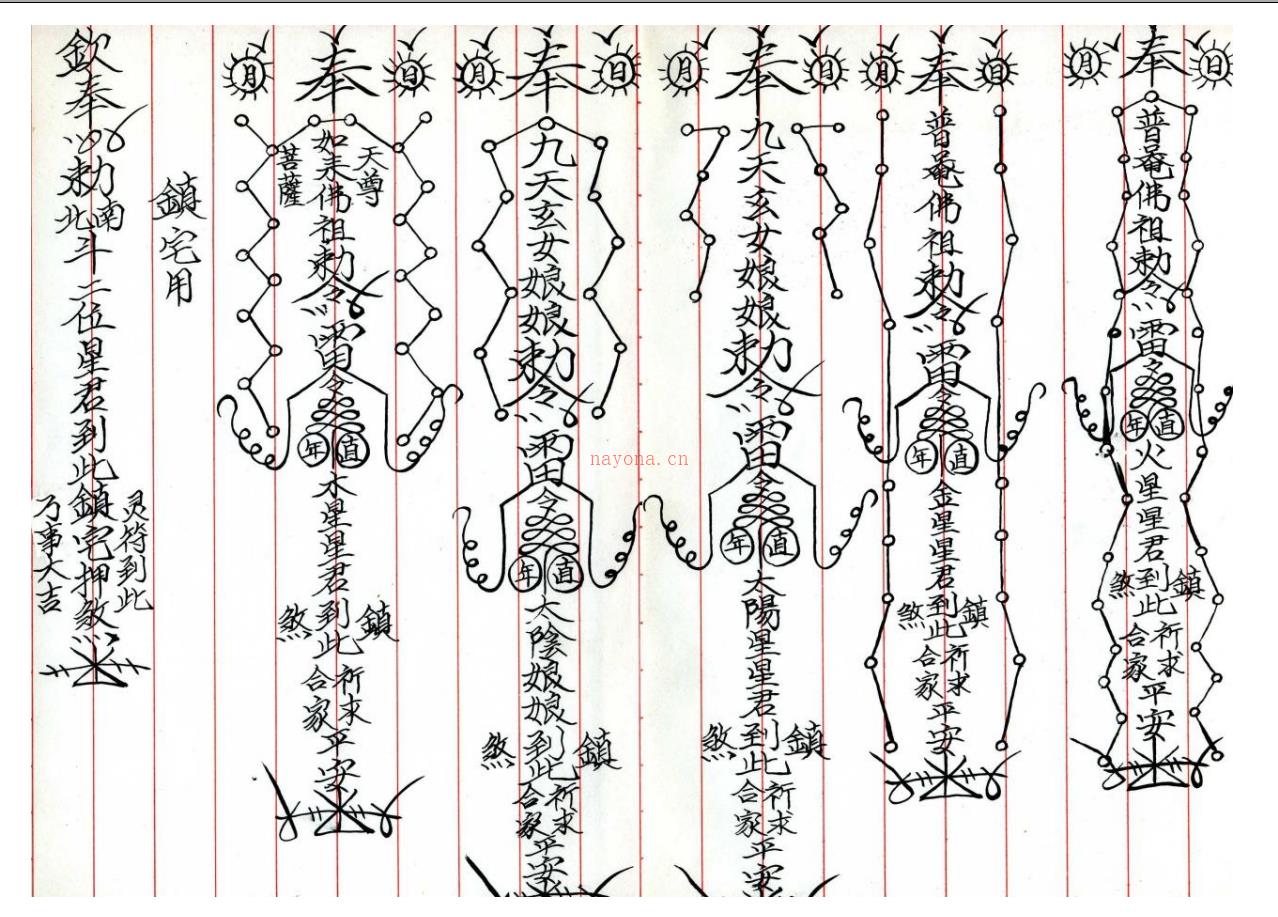 奉
日
月
普菴佛祖勅令
雷令
直年
火星星君到此
鎮煞
祈求
合家
平安
奉
日
月
普菴佛祖勅令
雷令
直年
金星星君到此
鎮煞
祈求
合家
平安
奉
日
月
九天玄女娘娘勅令
雷令
直年
太陽星星君到此
鎮煞
祈求
合家
平安
奉
日
月
九天玄女娘娘勅令
雷令
直年
太陰娘娘到此
鎮煞
祈求
合家
平安
奉
日
月
天尊
如来佛祖勅令
菩薩
雷令
直年
水星星君到此
鎮煞
祈求
合家
平安
鎮宅用
欽奉
勅南北斗二位星君到此鎮宅押煞
灵符到此
万事大吉
nayona.cn